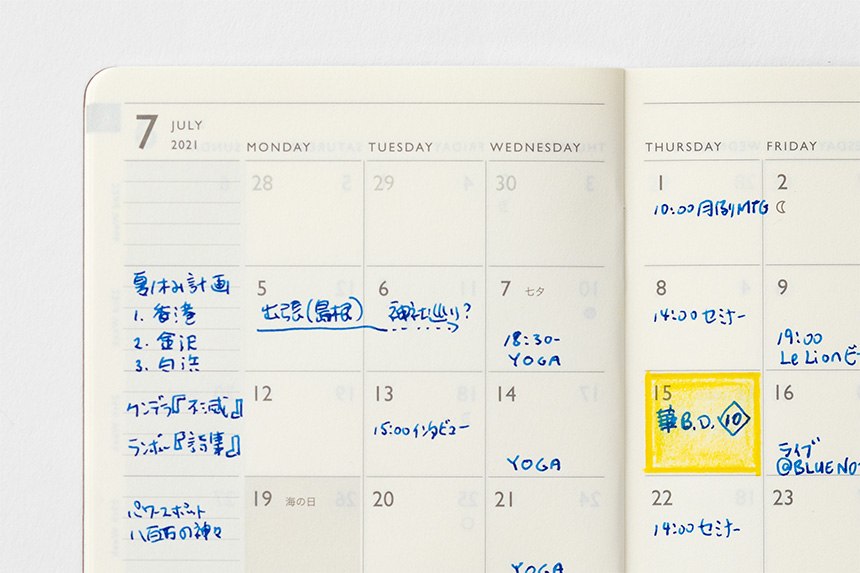 7 JULY
2021
MONDAY TUESDAY WEDNESDAY THURSDAY FRIDAY
28 29 30 1 2
10:00 月例MTG
夏休み計画
1. 香港
2. 金沢
3. 白浜
5 6 7 七夕 8 9
出張(島根) 神社巡り?
18:30-
YOGA
14:00 セミナー
19:00
Le Lionビ
ケンデラ『不滅』
ランボー『詩集』
12 13 14 15 16
15:00 インタビュー
YOGA
華B.D. 10
ライブ
@BLUE NO
パワースポット
八百万の神々
19 海の日 20 21 22 23
YOGA
14:00 セミナー